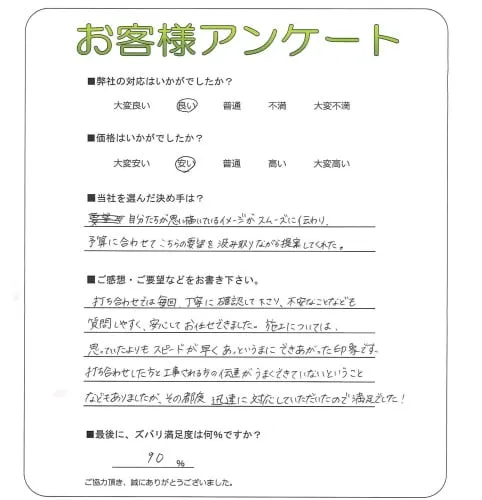 お客様アンケート
■弊社の対応はいかがでしたか？
大変良い 良い 普通 不満 大変不満
■価格はいかがでしたか？
大変安い 安い 普通 高い 大変高い
■当社を選んだ決め手は？
自分たちが思い描いているイメージがスムーズに伝わり、
予算に合わせてこちらの要望を汲み取りながら提案してくれた。
■ご感想・ご要望などをお書き下さい。
打ち合わせでは毎回、丁寧に確認して下さり、不安なことなども
質問しやすく、安心してお任せできました。施工については、
思っていたよりもスピードが早くあっというまにできあがった印象です。
打ち合わせした方と工事される方の伝達がうまくできていないということ
などもありましたが、その都度 迅速に対応していただいたので満足でした！
■最後に、ズバリ満足度は何％ですか？
90 ％
ご協力頂き、誠にありがとうございました。